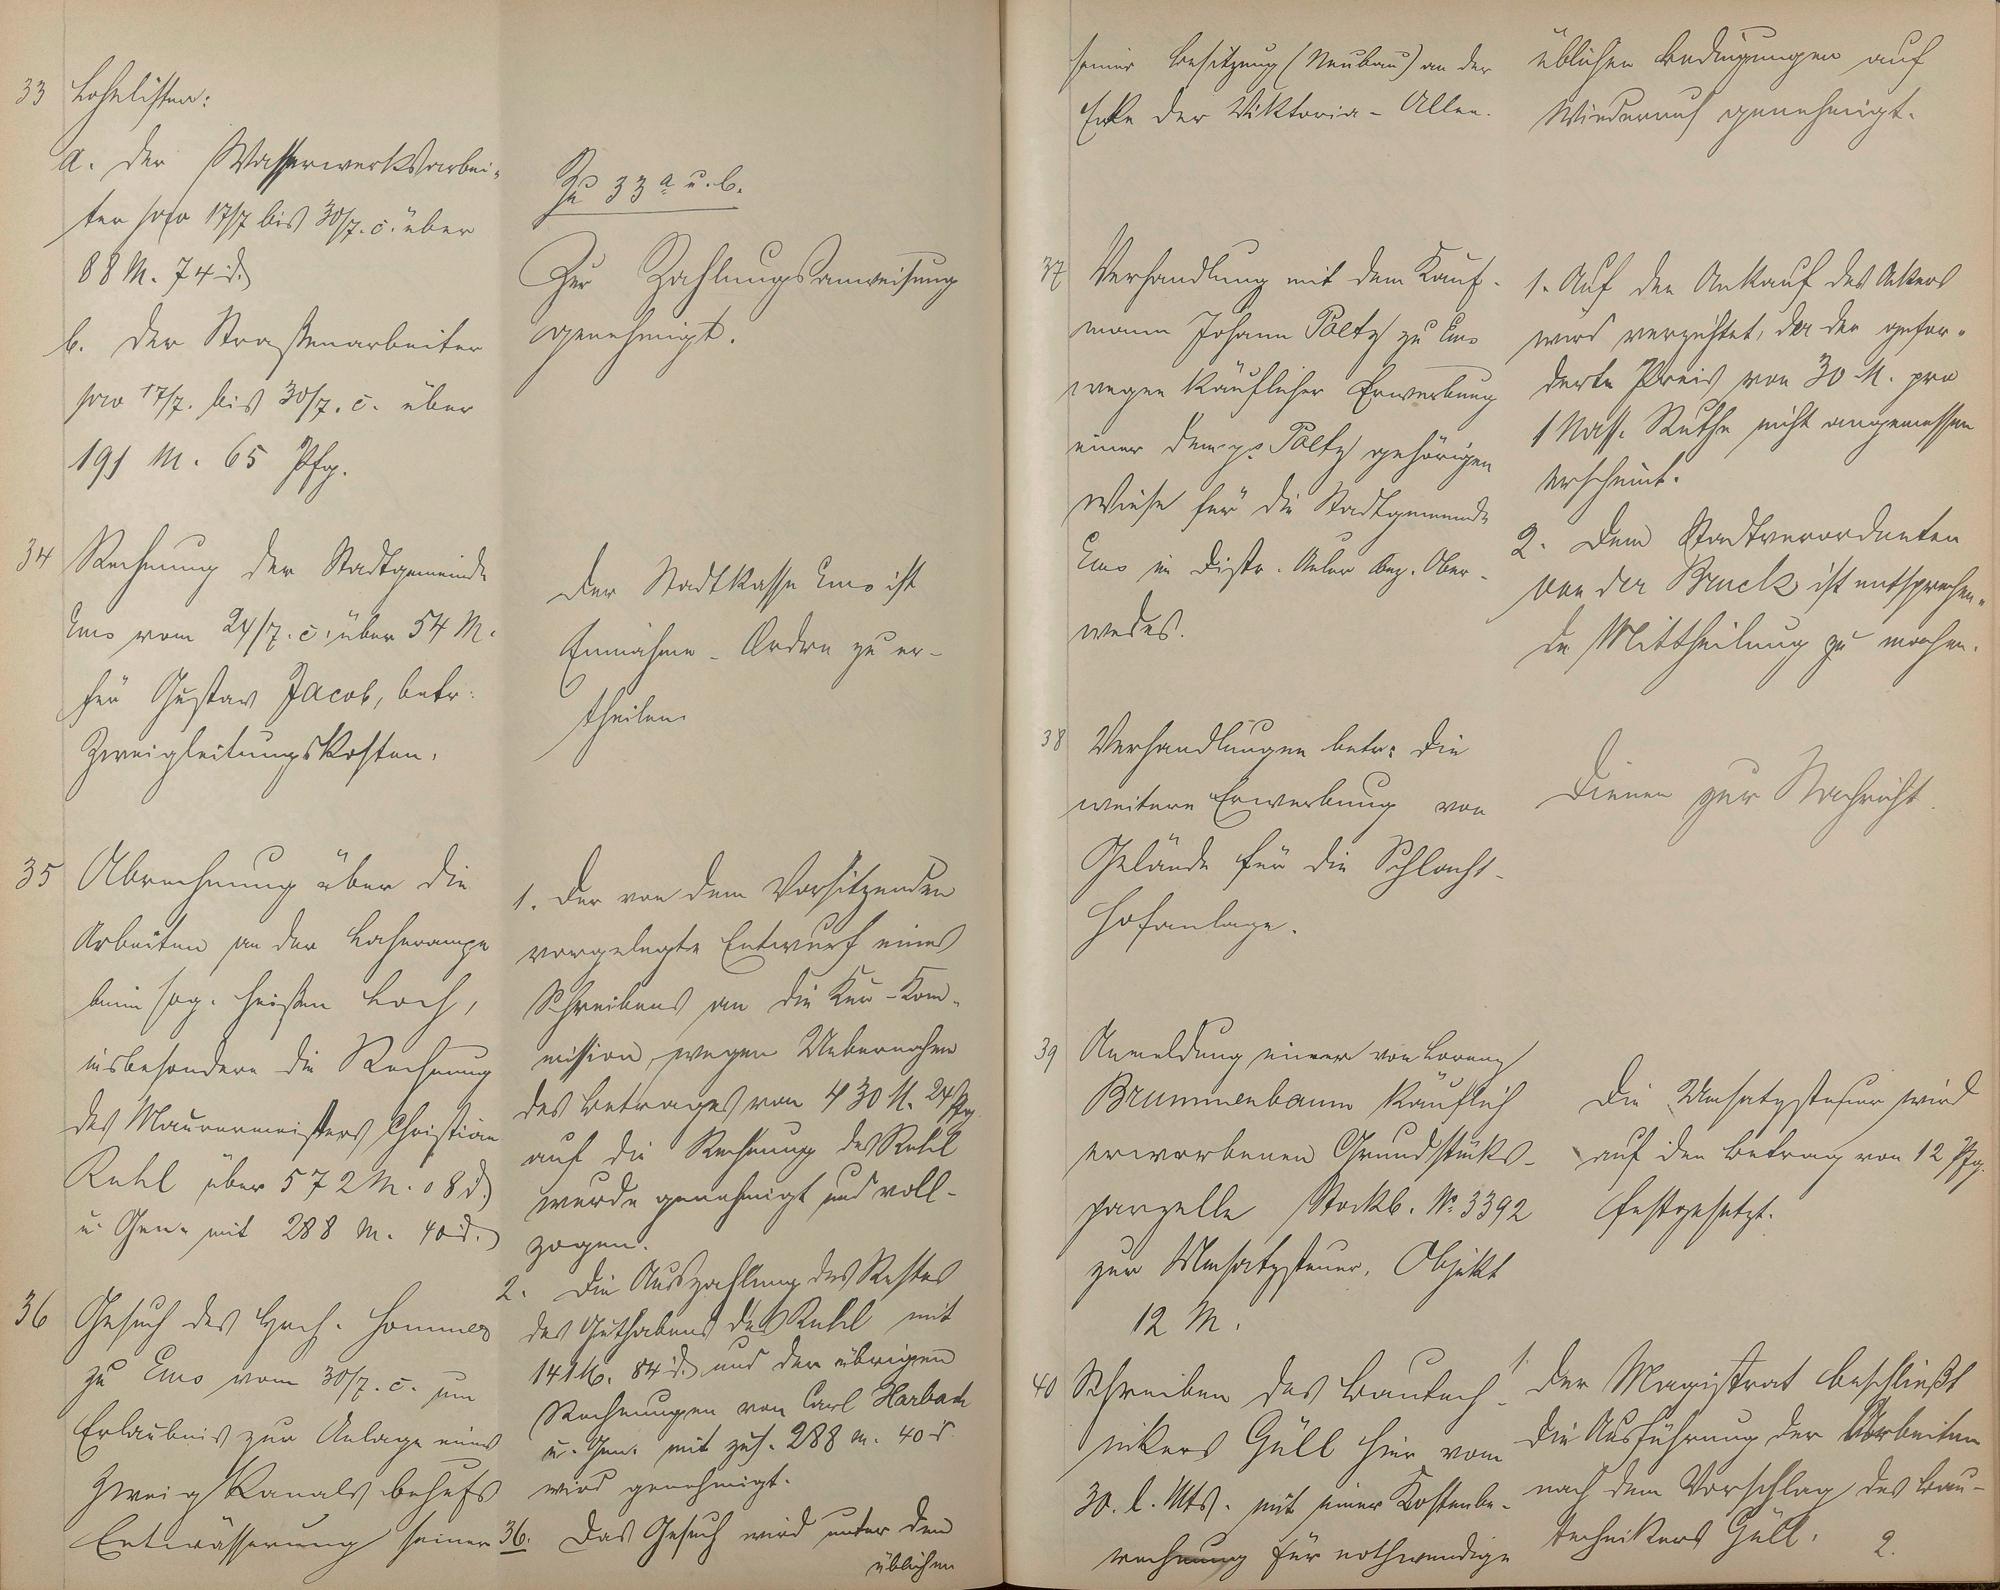 33 Lohnlisten:
a. der Wasserwerksarbei-
ter pro 17/7 bis 30/7. c. über
88 M. 74 d.
b. der Straßenarbeiter
pro 17/7. bis 30/7. c. über
191 M. 65 Pfg.
Zu 33 a u. b.
Zur Zahlungsanweisung
genehmigt.
34 Rechnung der Stadtgemeinde
Ems vom 24/7. c. über 54 M.
für Gustav Jacob, betr.
Zweigleitungskosten.
Der Stadtkasse Ems ist
Einnahme-Ordre zu er-
theilen.
35 Abrechnung über die
Arbeiten an der Lahnrampe
beim sog. heißen Loch,
insbesondere die Rechnung
des Maurermeisters Christian
Ruhl über 572 M. 08 d.
u. Gen. mit 288 M. 40 d.
1. Der von dem Vorsitzenden
vorgelegte Entwurf eines
Schreibens an die Kur-Kom-
mission wegen Uebernahme
des Betrages von 430 M. 24 Pfg.
auf die Rechnung des Ruhl
wurde genehmigt und voll-
zogen.
2. Die Auszahlung des Restes
des Guthabens des Ruhl mit
141 M. 84 d. und der übrigen
Rechnungen von Carl Harbach
u. Gen. mit zus. 288 M. 40 d.
wird genehmigt.
36 Gesuch des Hch. Hommer
zu Ems vom 30/7. c. um
Erlaubnis zur Anlage eines
Zweigkanals behufs
Entwässerung seiner
36. Das Gesuch wird unter den
üblichen
seiner Besitzung (Neubau) an der
Ecke der Viktoria-Allee.
üblichen Bedingungen auf
Wiederruf genehmigt.
37 Verhandlung mit dem Kauf-
mann Johann Poltz zu Ems
wegen käuflicher Erwerbung
einer dem p. Poltz gehörigen
Wiese für die Stadtgemeinde
Ems im Distr. Ober-
wedes.
1. Auf den Ankauf des Ackers
wird verzichtet, da der gefor-
derte Preis von 30 M. pro
1 Nass. Ruthe nicht angemessen
erscheint.
2. Dem Stadtverordneten
von der Bruck ist entsprechen-
de Mittheilung zu machen.
38 Verhandlungen betr. die
weitere Erwerbung von
Gelände für die Schlacht-
hofanlage.
Dienen zur Nachricht.
39 Anmeldung einer von Lorenz
Brummenbaum käuflich
erworbenen Grundstücks-
parzelle Stockb. No. 3392
zur Umsatzsteuer. Objekt
12 M.
Die Umsatzsteuer wird
auf den Betrag von 12 Pfg.
festgesetzt.
40 Schreiben des Bautech-
nikers Güll hier vom
30. l. Mts. mit einer Kostenbe-
rechnung für nothwendige
1. Der Magistrat beschließt
die Ausführung der Arbeiten
nach dem Vorschlag des Bau-
technikers Güll.
2.